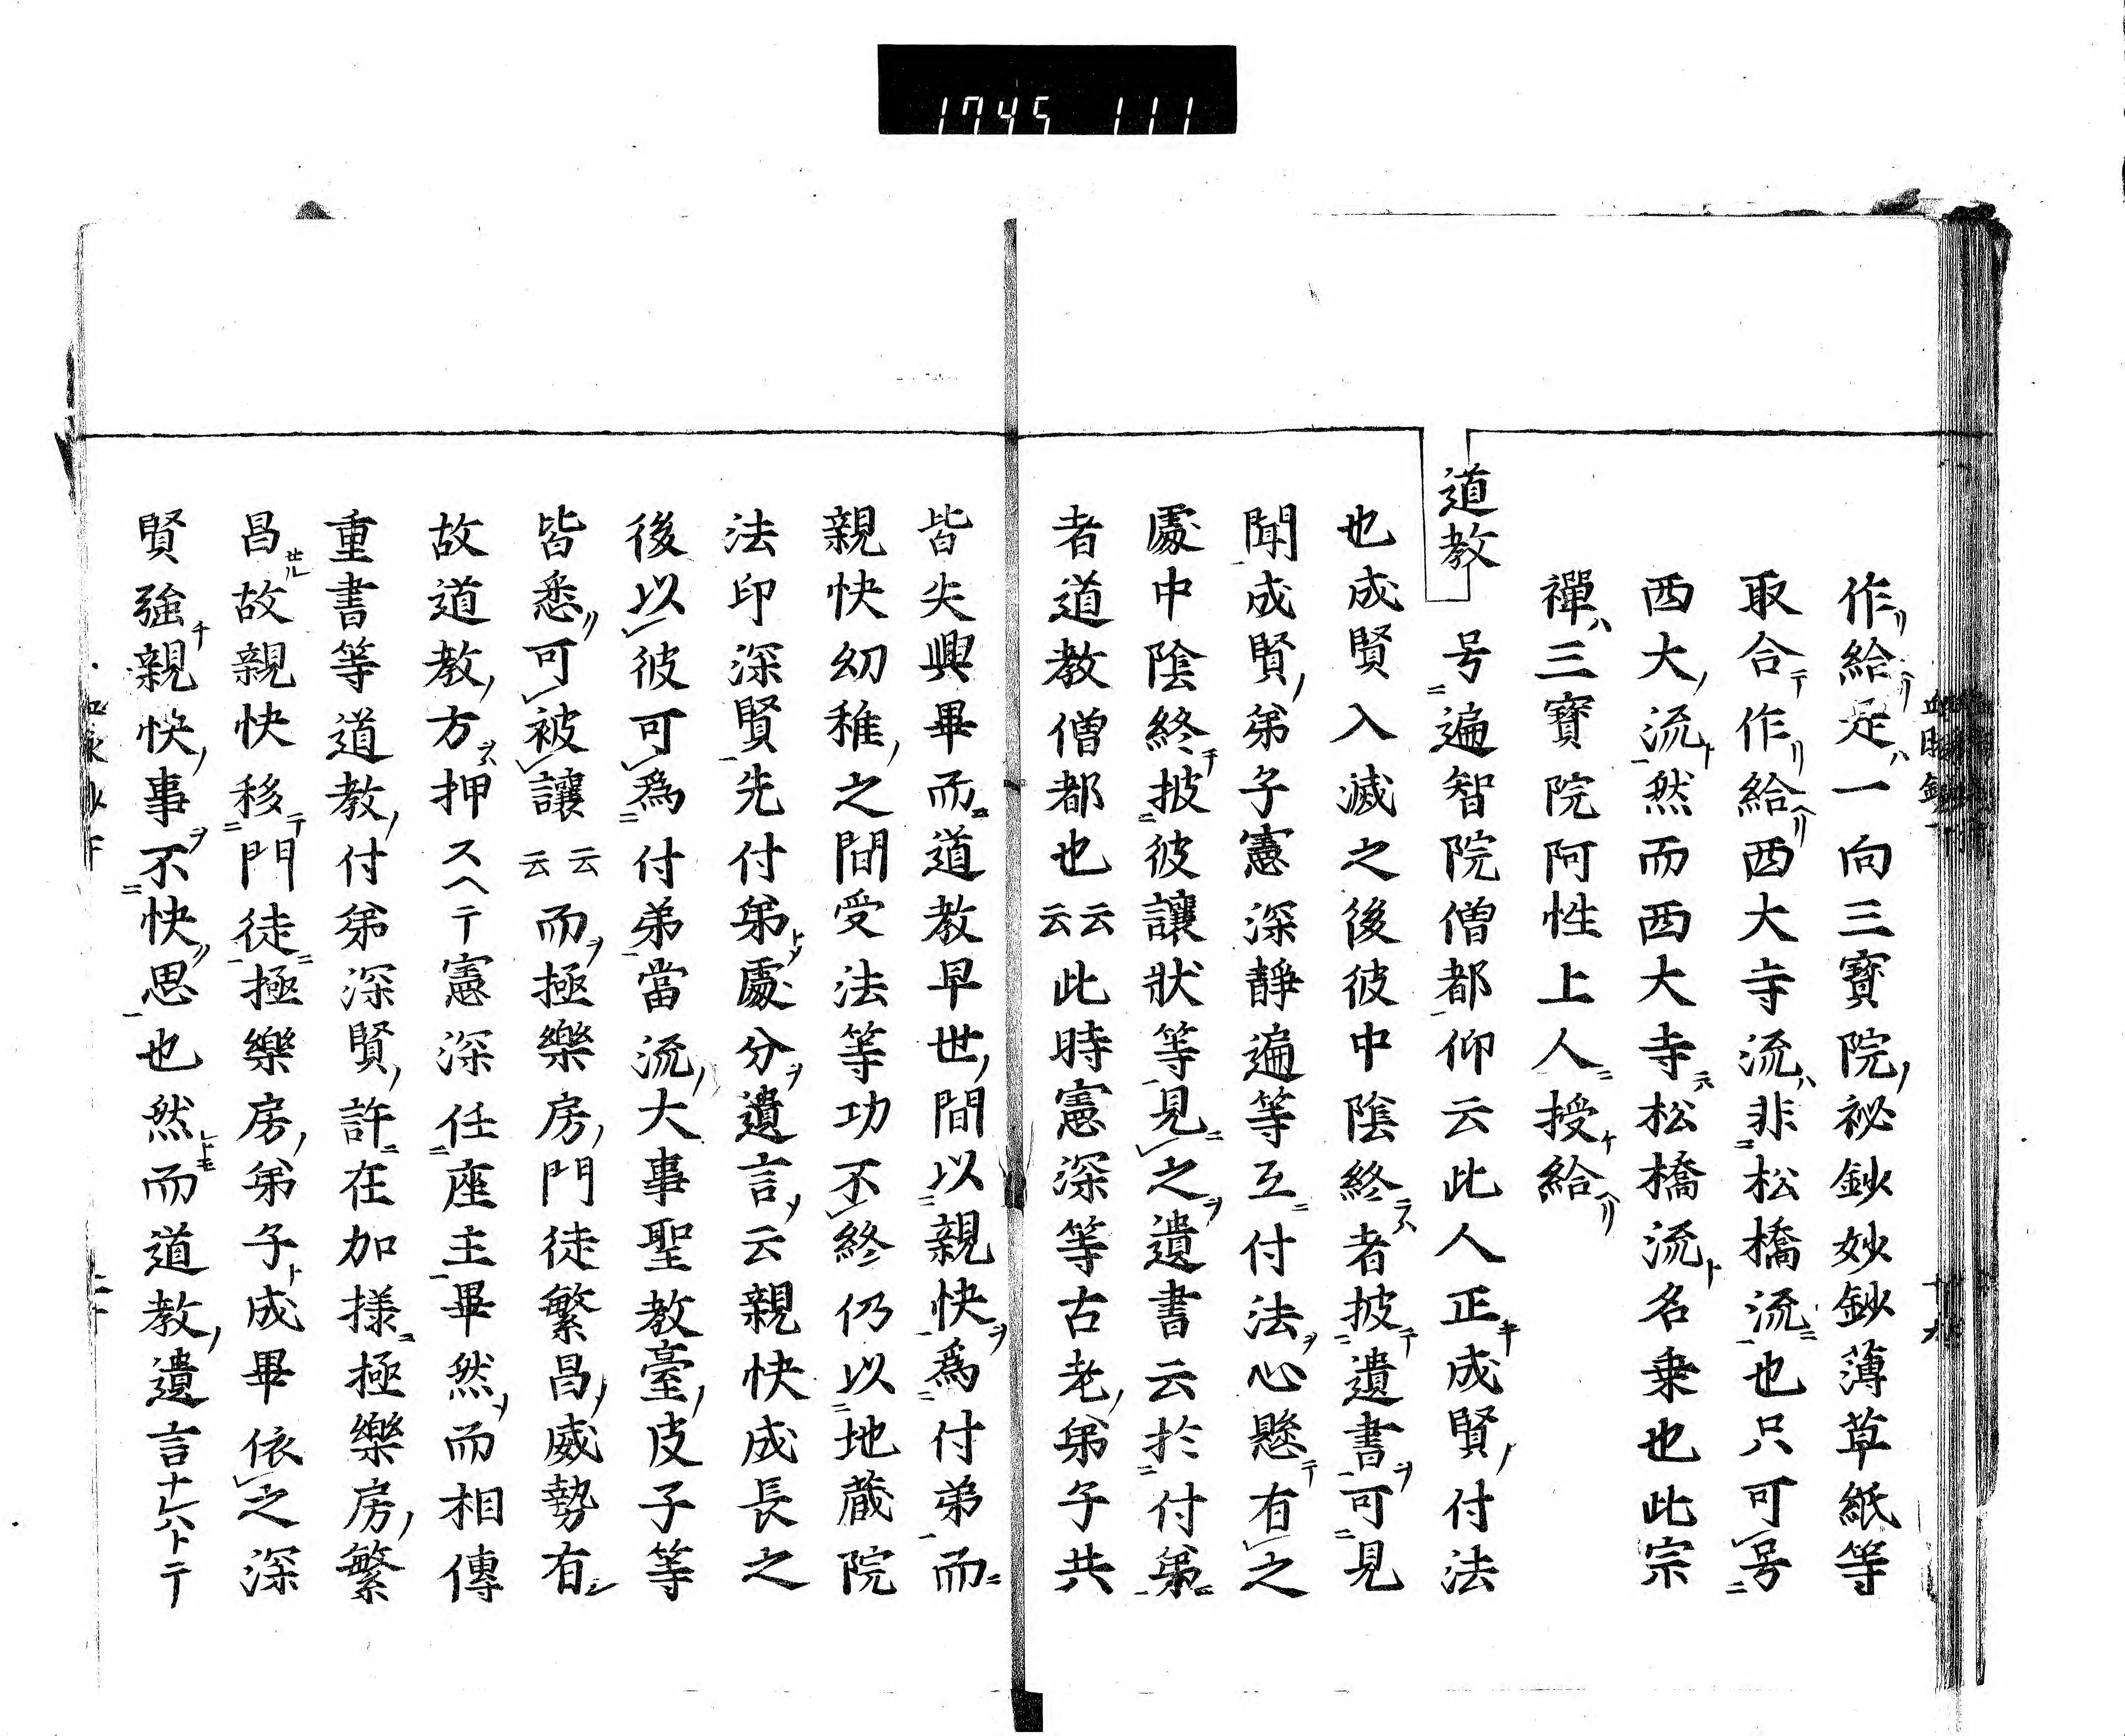 1745 111
作給是一向三寶院祕鈔妙鈔薄草紙等
取合作給西大寺流非松橋流也只可号
西大流然而西大寺松橋流名乗也此宗
禪三寶院阿性上人授給
道教 号遍智院僧都仰云此人正成賢付法
也成賢入滅之後彼中陰終者披遺書可見
聞成賢弟子憲深靜遍等互付法心懸有之
處中陰終披彼讓状等見之遺書云於付弟
者道教僧都也云云此時憲深等古老弟子共
皆失興畢而道教早世間以親快爲付弟而
親快幼稚之間受法等功不終仍以地蔵院
法印深賢先付弟處分遺言云親快成長之
後以彼可爲付弟當流大事聖教臺皮子等
皆悉可被讓云云而極樂房門徒繁昌威勢有
故道教方押スヘテ憲深任座主畢然而相傳
重書等道教付弟深賢許在加様極樂房繁
昌故親快移門徒極樂房弟子成畢依之深
賢強親快事不快思也然而道教遺言ナレハトテ